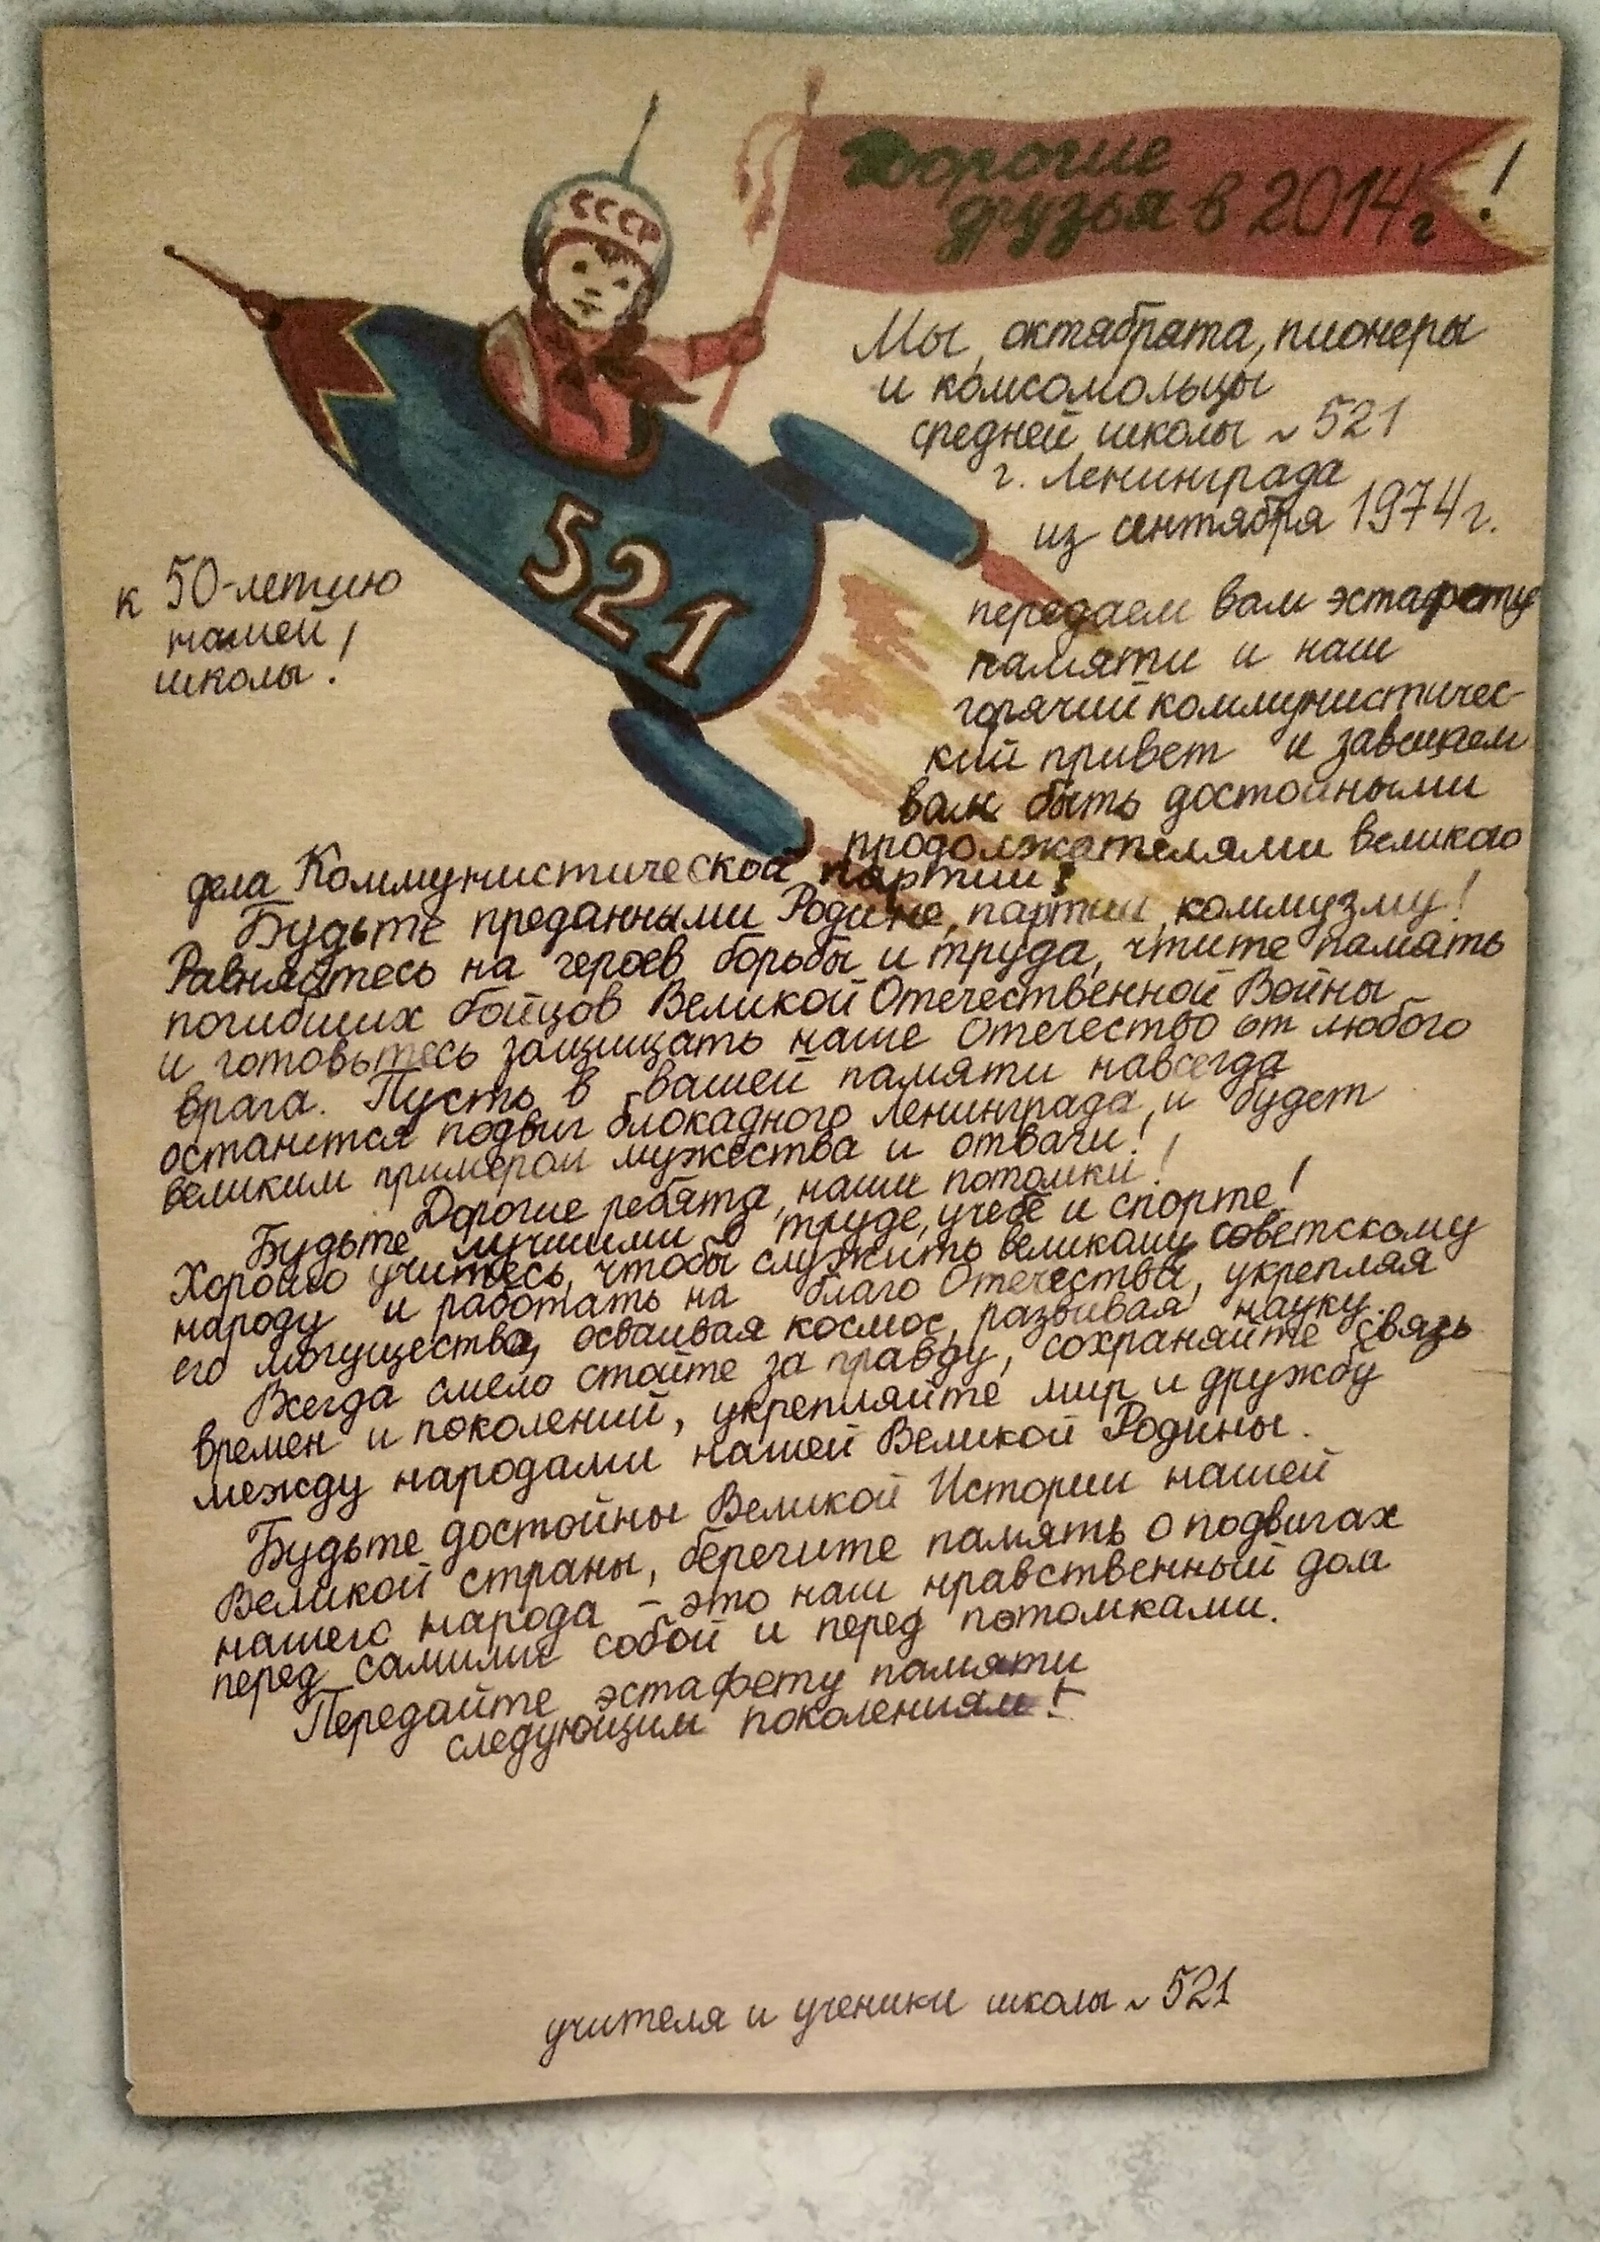 Дорогие
друзья в 2014 г!
СССР
521
Мы, октябрята, пионеры
и комсомольцы
средней школы ~ 521
г. Ленинграда
из сентября 1974 г.
к 50-летию
нашей
школы!
передаем вам эстафету
памяти и наш
горячий коммунистичес-
кий привет и завещаем
вам быть достойными
продолжателями великого
дела Коммунистической партии!
Будьте преданными Родине, партии, коммузму!
Равняйтесь на героев борьбы и труда, чтите память
погибших бойцов Великой Отечественной Войны
и готовьтесь защищать наше Отечество от любого
врага. Пусть в вашей памяти навсегда
останется подвиг блокадного Ленинграда, и будет
великим примером мужества и отваги!
Дорогие ребята, наши потомки!
Будьте лучшими в труде, учебе и спорте!
Хорошо учитесь, чтобы служить великому советскому
народу и работать на благо Отечества, укрепляя
его могущество, осваивая космос, развивая науку.
Всегда смело стойте за правду, сохраняйте связь
времен и поколений, укрепляйте мир и дружбу
между народами нашей Великой Родины.
Будьте достойны Великой Истории нашей
Великой страны, берегите память о подвигах
нашего народа – это наш нравственный долг
перед самими собой и перед потомками.
Передайте эстафету памяти
следующим поколениям!
учителя и ученики школы ~ 521